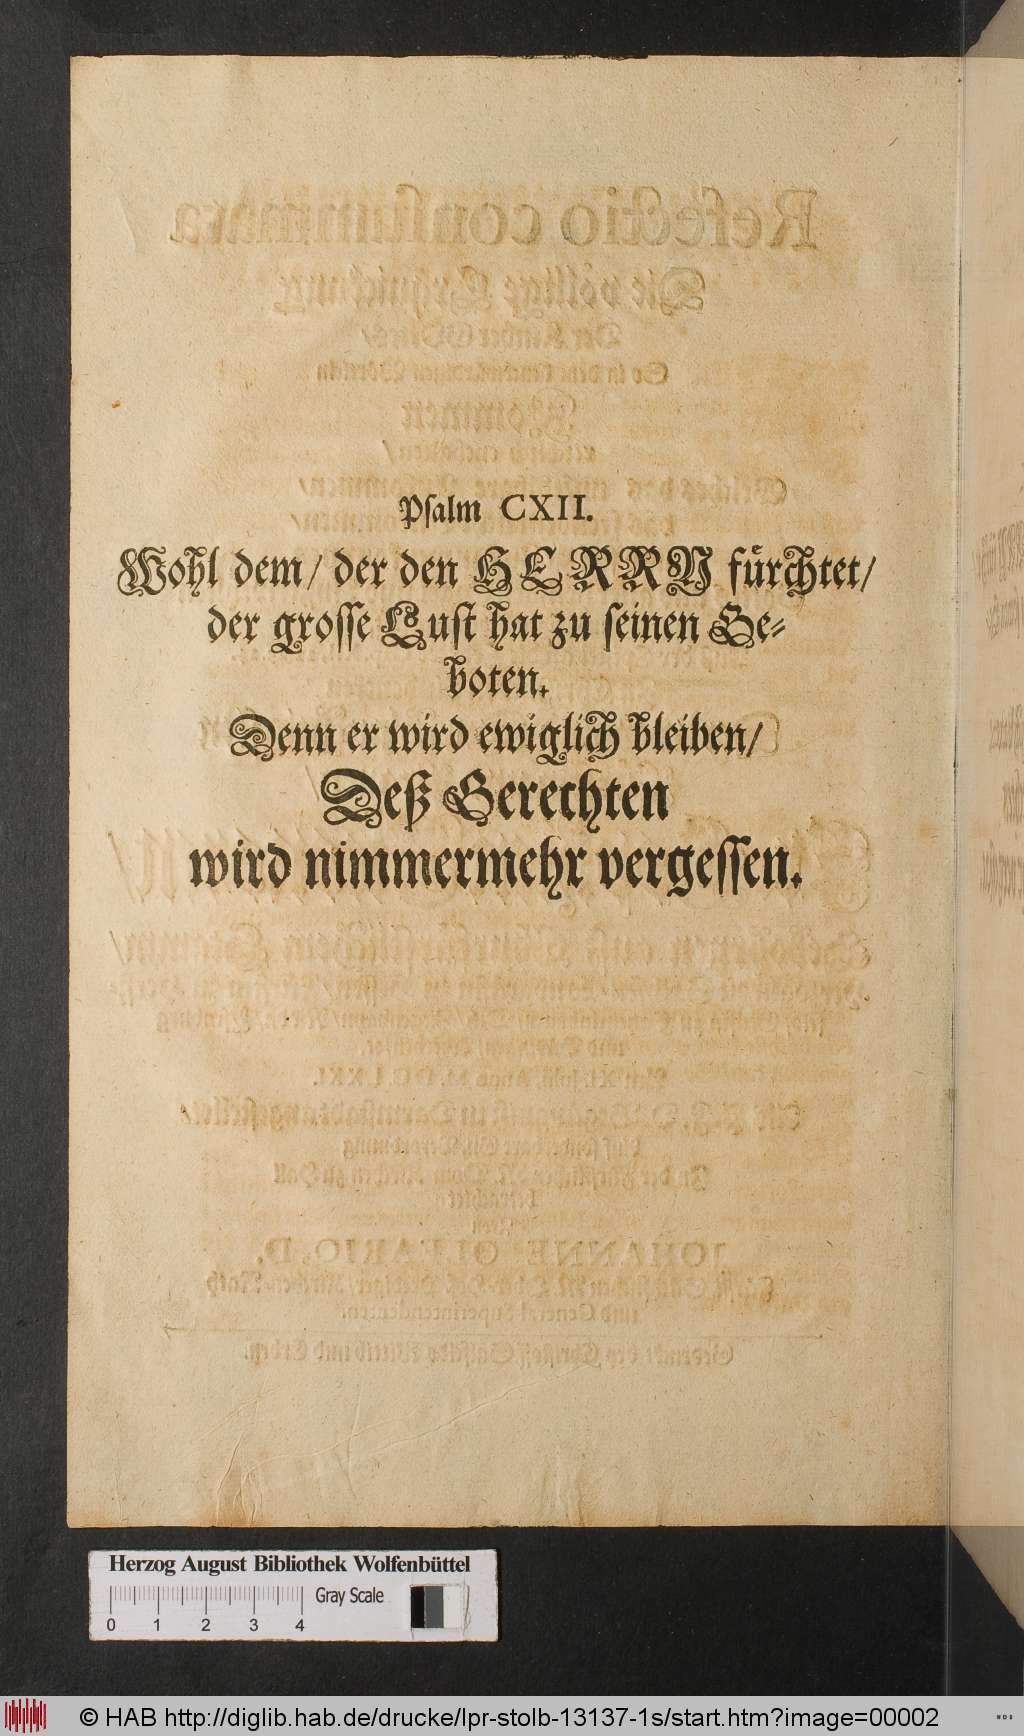 Psalm CXII.
Wohl dem/ der den HERRN fürchtet/
der grosse Lust hat zu seinen Ge-
boten.
Denn er wird ewiglich bleiben/
Deß Gerechten
wird nimmermehr vergessen.
Herzog August Bibliothek Wolfenbüttel
Gray Scale
0 1 2 3 4
© HAB http://diglib.hab.de/drucke/lpr-stolb-13137-1s/start.htm?image=00002